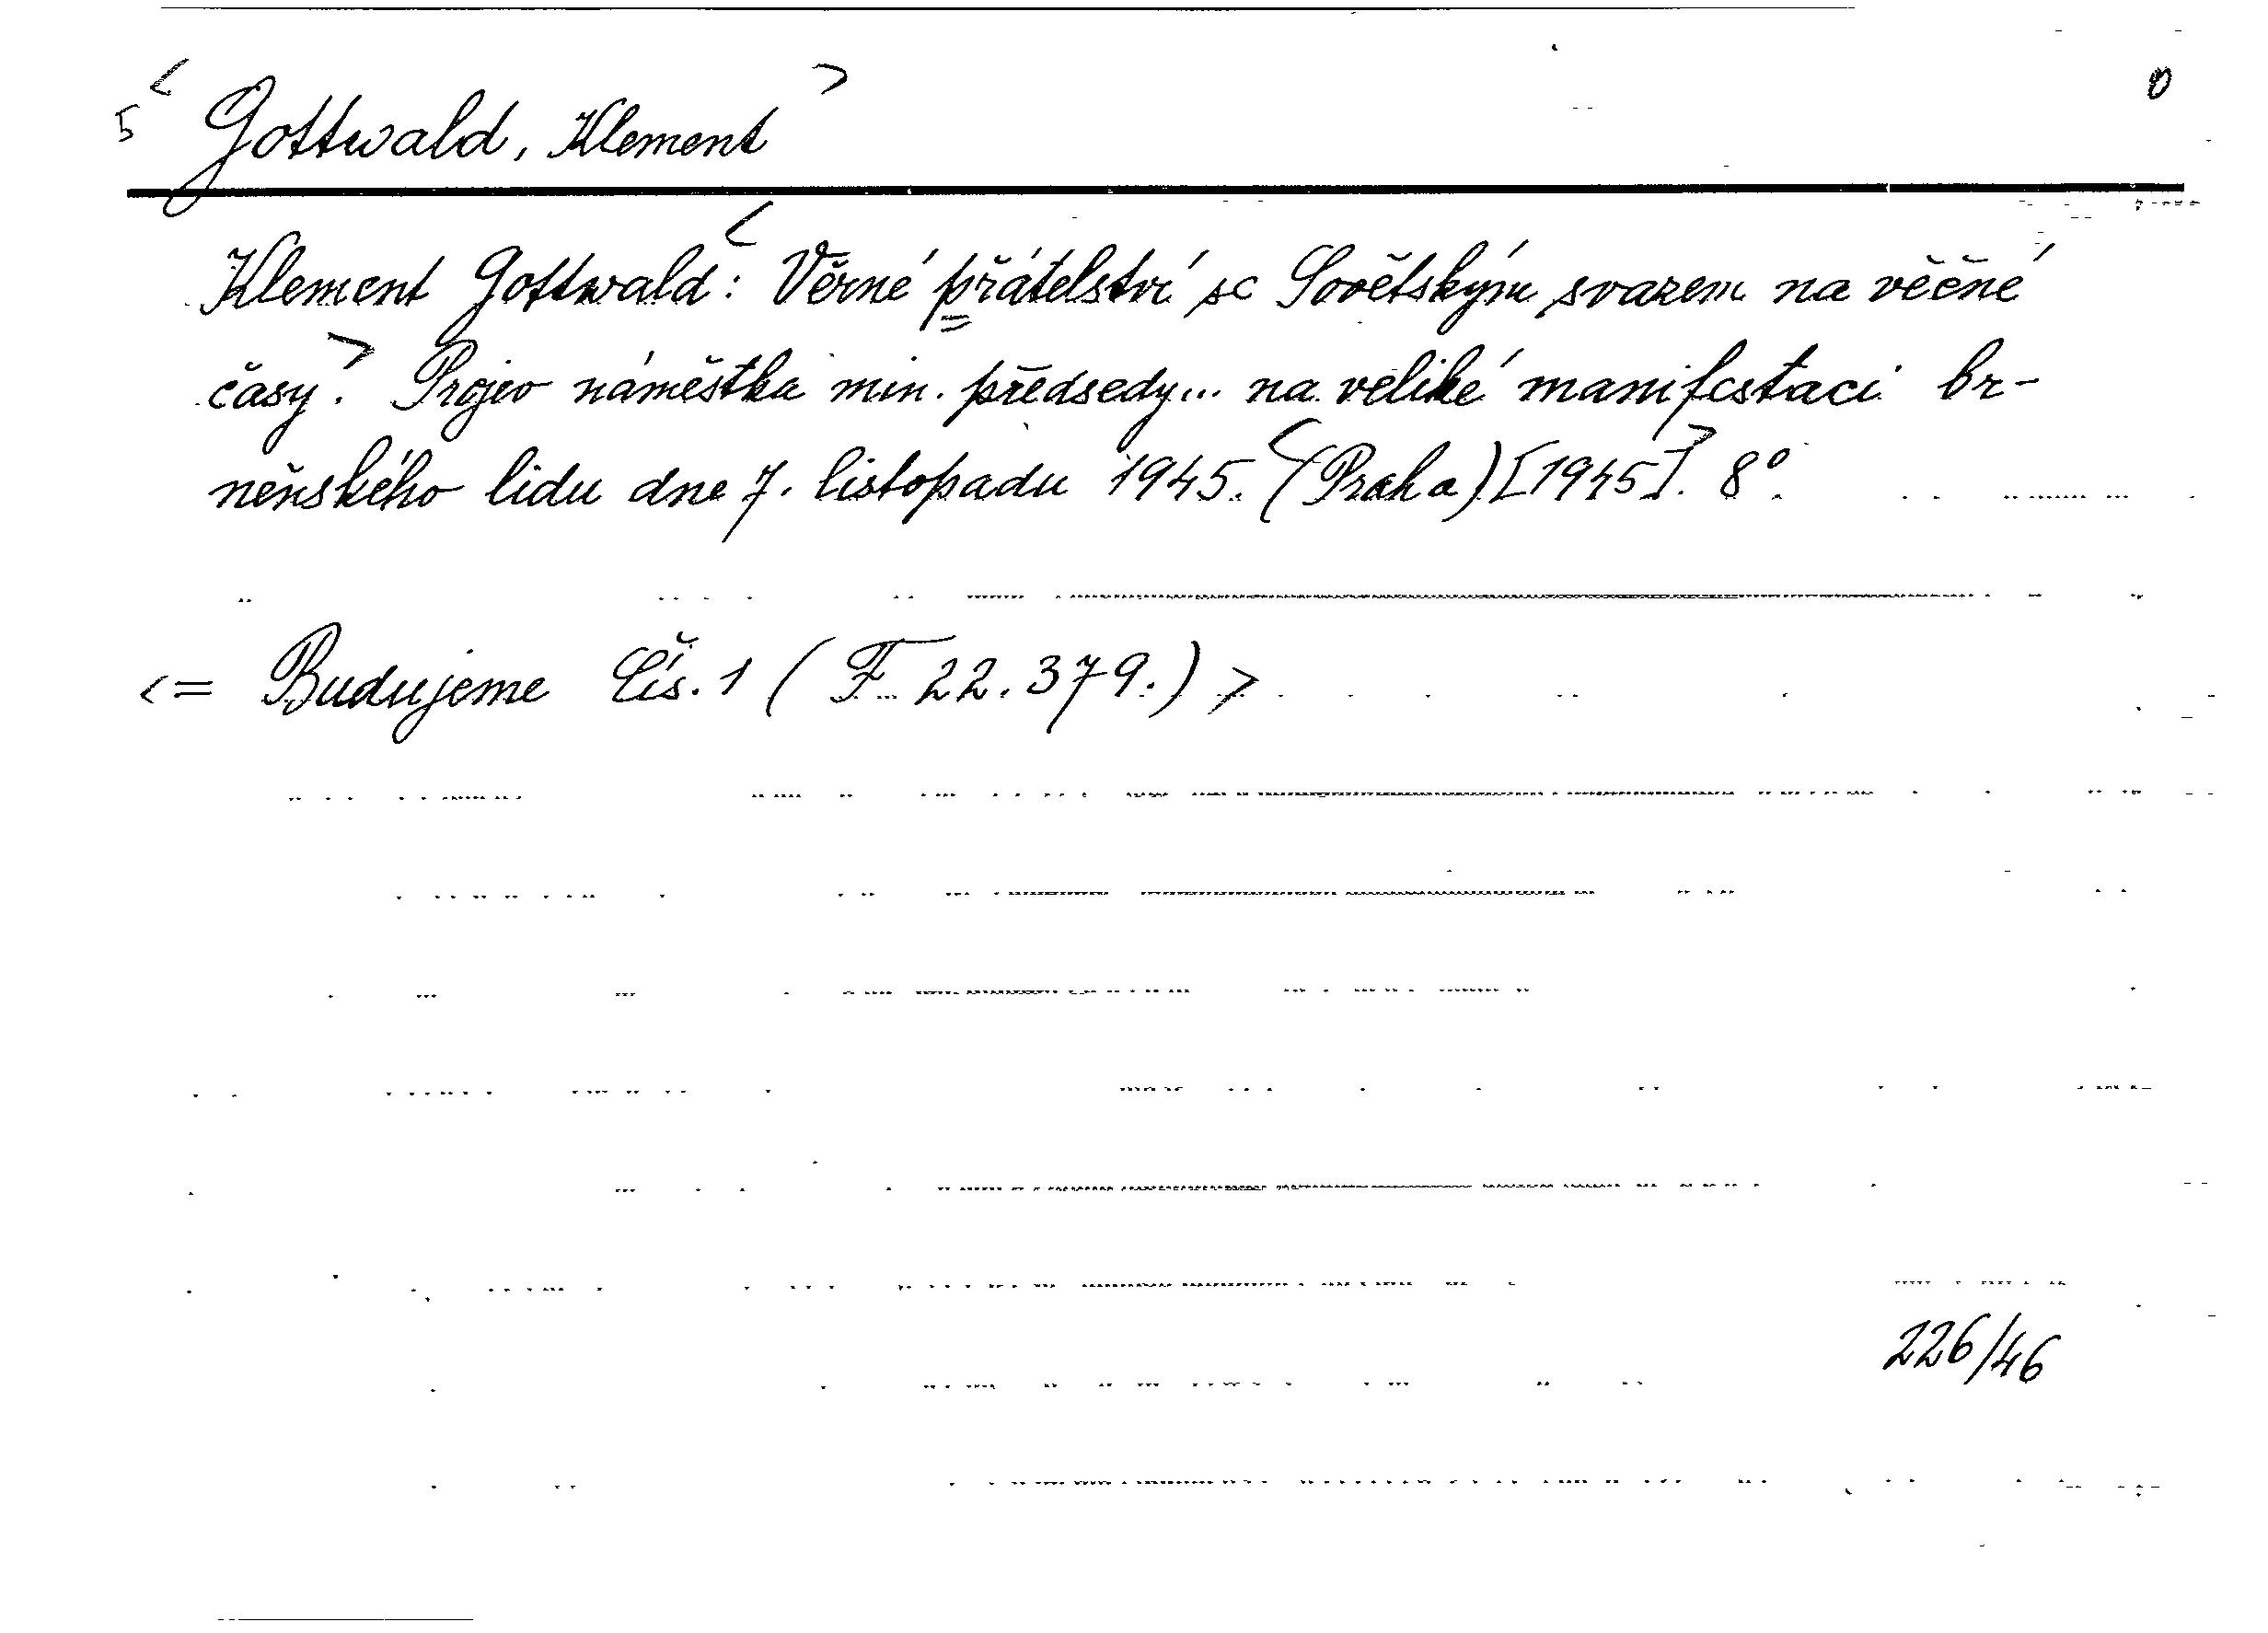 5 <Gottwald, Klement> 0
Klement Gottwald: <Věrné přátelství se Sovětským svazem na věčné
časy>. Projev náměstka min. předsedy... na veliké manifestaci br-
něnského lidu dne 7. listopadu 1945. <(Praha) [1945]>. 8°.
<= Budujeme Čís. 1 (F 22.379.)>
226/46